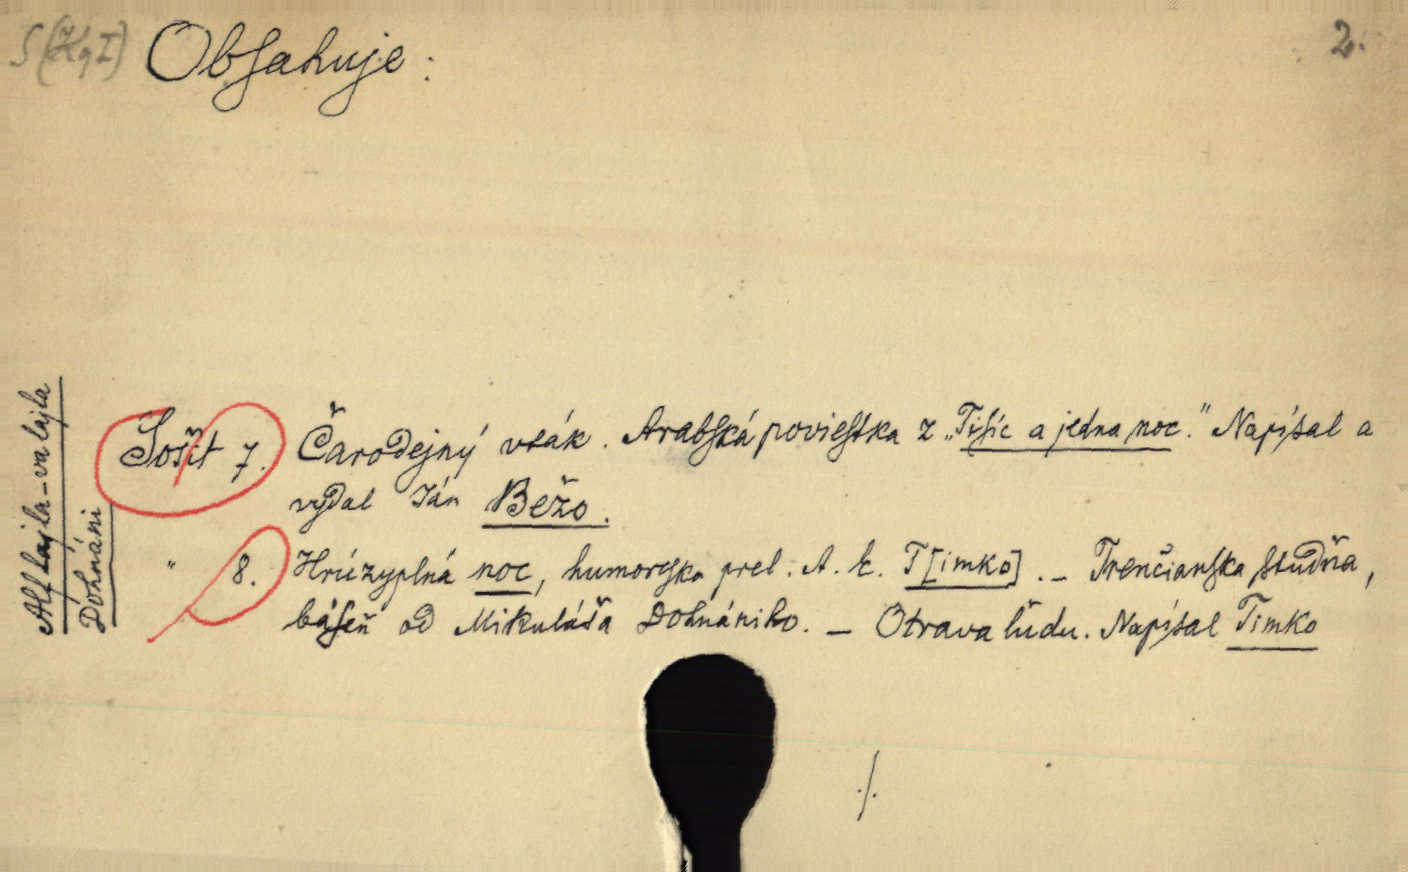 Obsahuje:
2.
Alf lajla-va lajla
Dohnáni
Sošit 7. Čarodejný vták. Arabská poviestka z „Tisíc a jedna noc." Napísal a
vydal Ján Bežo.
" 8. Hrúzyplná noc, humoreska prel. A. E. T[imko]. – Trenčianska studňa,
báseň od Mikuláša Dohnániho. – Otrava ľudu. Napísal Timko
./.